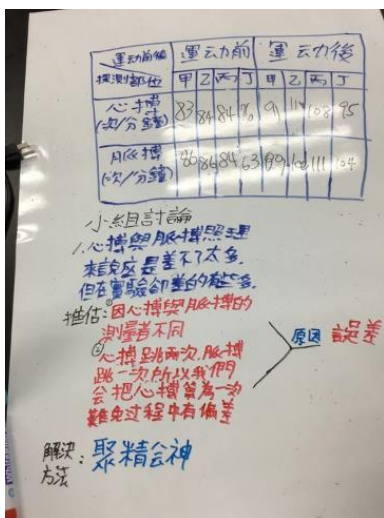 運动前後 運动前 運动力後
探測部位 甲 乙 丙 丁 甲 乙 丙 丁
心搏 83 84 84 91 108 95
(次/分鐘)
脈搏 86 86 84 63 99 111 104
(次/分鐘)
小組討論
1.心搏與脈搏照理
來說應是差不了太多,
但在實驗卻差的有些多.
推估:①因心搏與脈搏的
測量者不同
②心搏跳兩次,脈搏
跳一次,所以我們
会把心搏算為一次
難免过程中有偏差
原因 誤差
解決方法:聚精会神